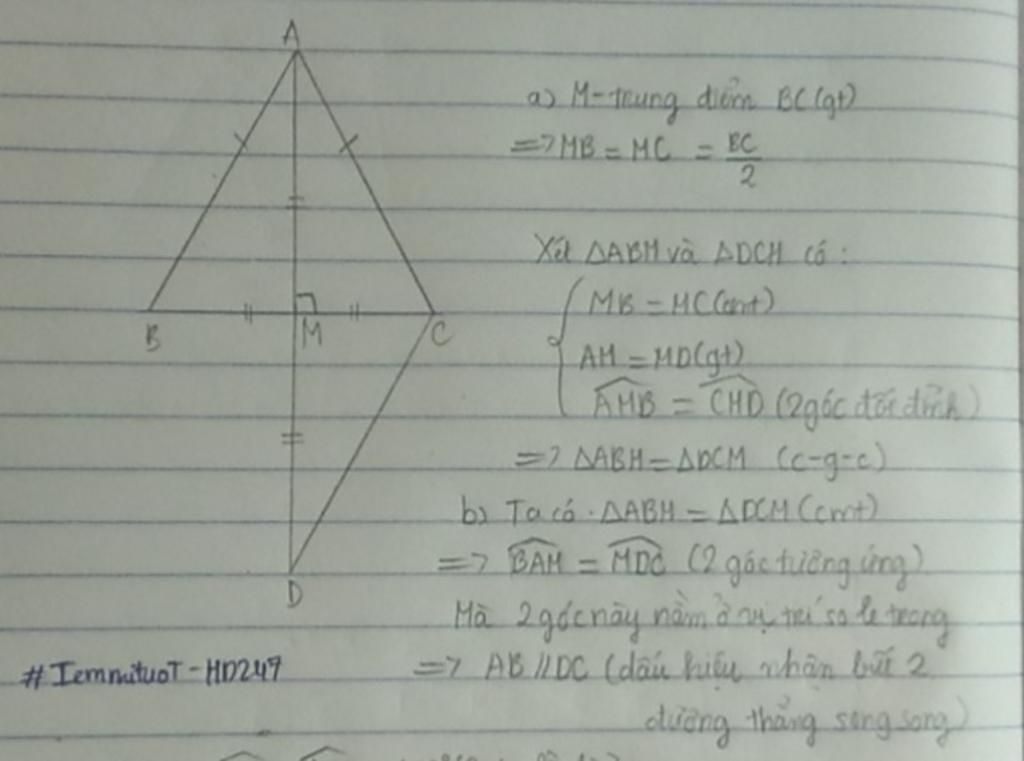 A
B
M
C
D
a) M-trung điểm BC (gt)
=> MB = MC = BC/2
Xét ΔABM và ΔDCM có:
MB = MC (cmt)
AM = MD (gt)
AMB = CMD (2 góc đối đỉnh)
=> ΔABM = ΔDCM (c-g-c)
b) Ta có ΔABM = ΔDCM (cmt)
=> BAM = MDC (2 góc tương ứng)
Mà 2 góc này nằm ở vị trí so le trong
=> AB // DC (dấu hiệu nhận biết 2
đường thẳng song song)
#IemnituoT-HD247